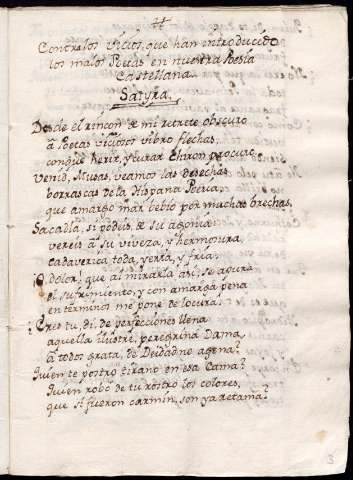 Contra los vicios, que han introducido
los malos Poetas en nuestra Poesia
Castellana.
Satyra.
Desde el rincon de mi retrete obscuro
à Poetas viciosos vibro flechas,
conque herir, y curar Chiron procuro.
Venid, Musas, veamos las desechas
borrascas de la Hispana Poesia,
que amargo mar bebio por muchas brechas.
Sacadla, si podeis, de su agonia
vereis à su viveza, y hermosura
cadaverica toda, yerta, y fria.
O dolor! que al mirarla asi, se apura
el sufrimiento, y con amarga pena
en terminos me pone de locura.
Eres tu, di, de perfecciones llena
aquella ilustre, peregrina Dama,
à todos grata, de Deidad no agena?
Quien te postrò tirano en esa Cama?
Quien robò de tu rostro los colores,
que si fueron carmin, son ya retama?
3